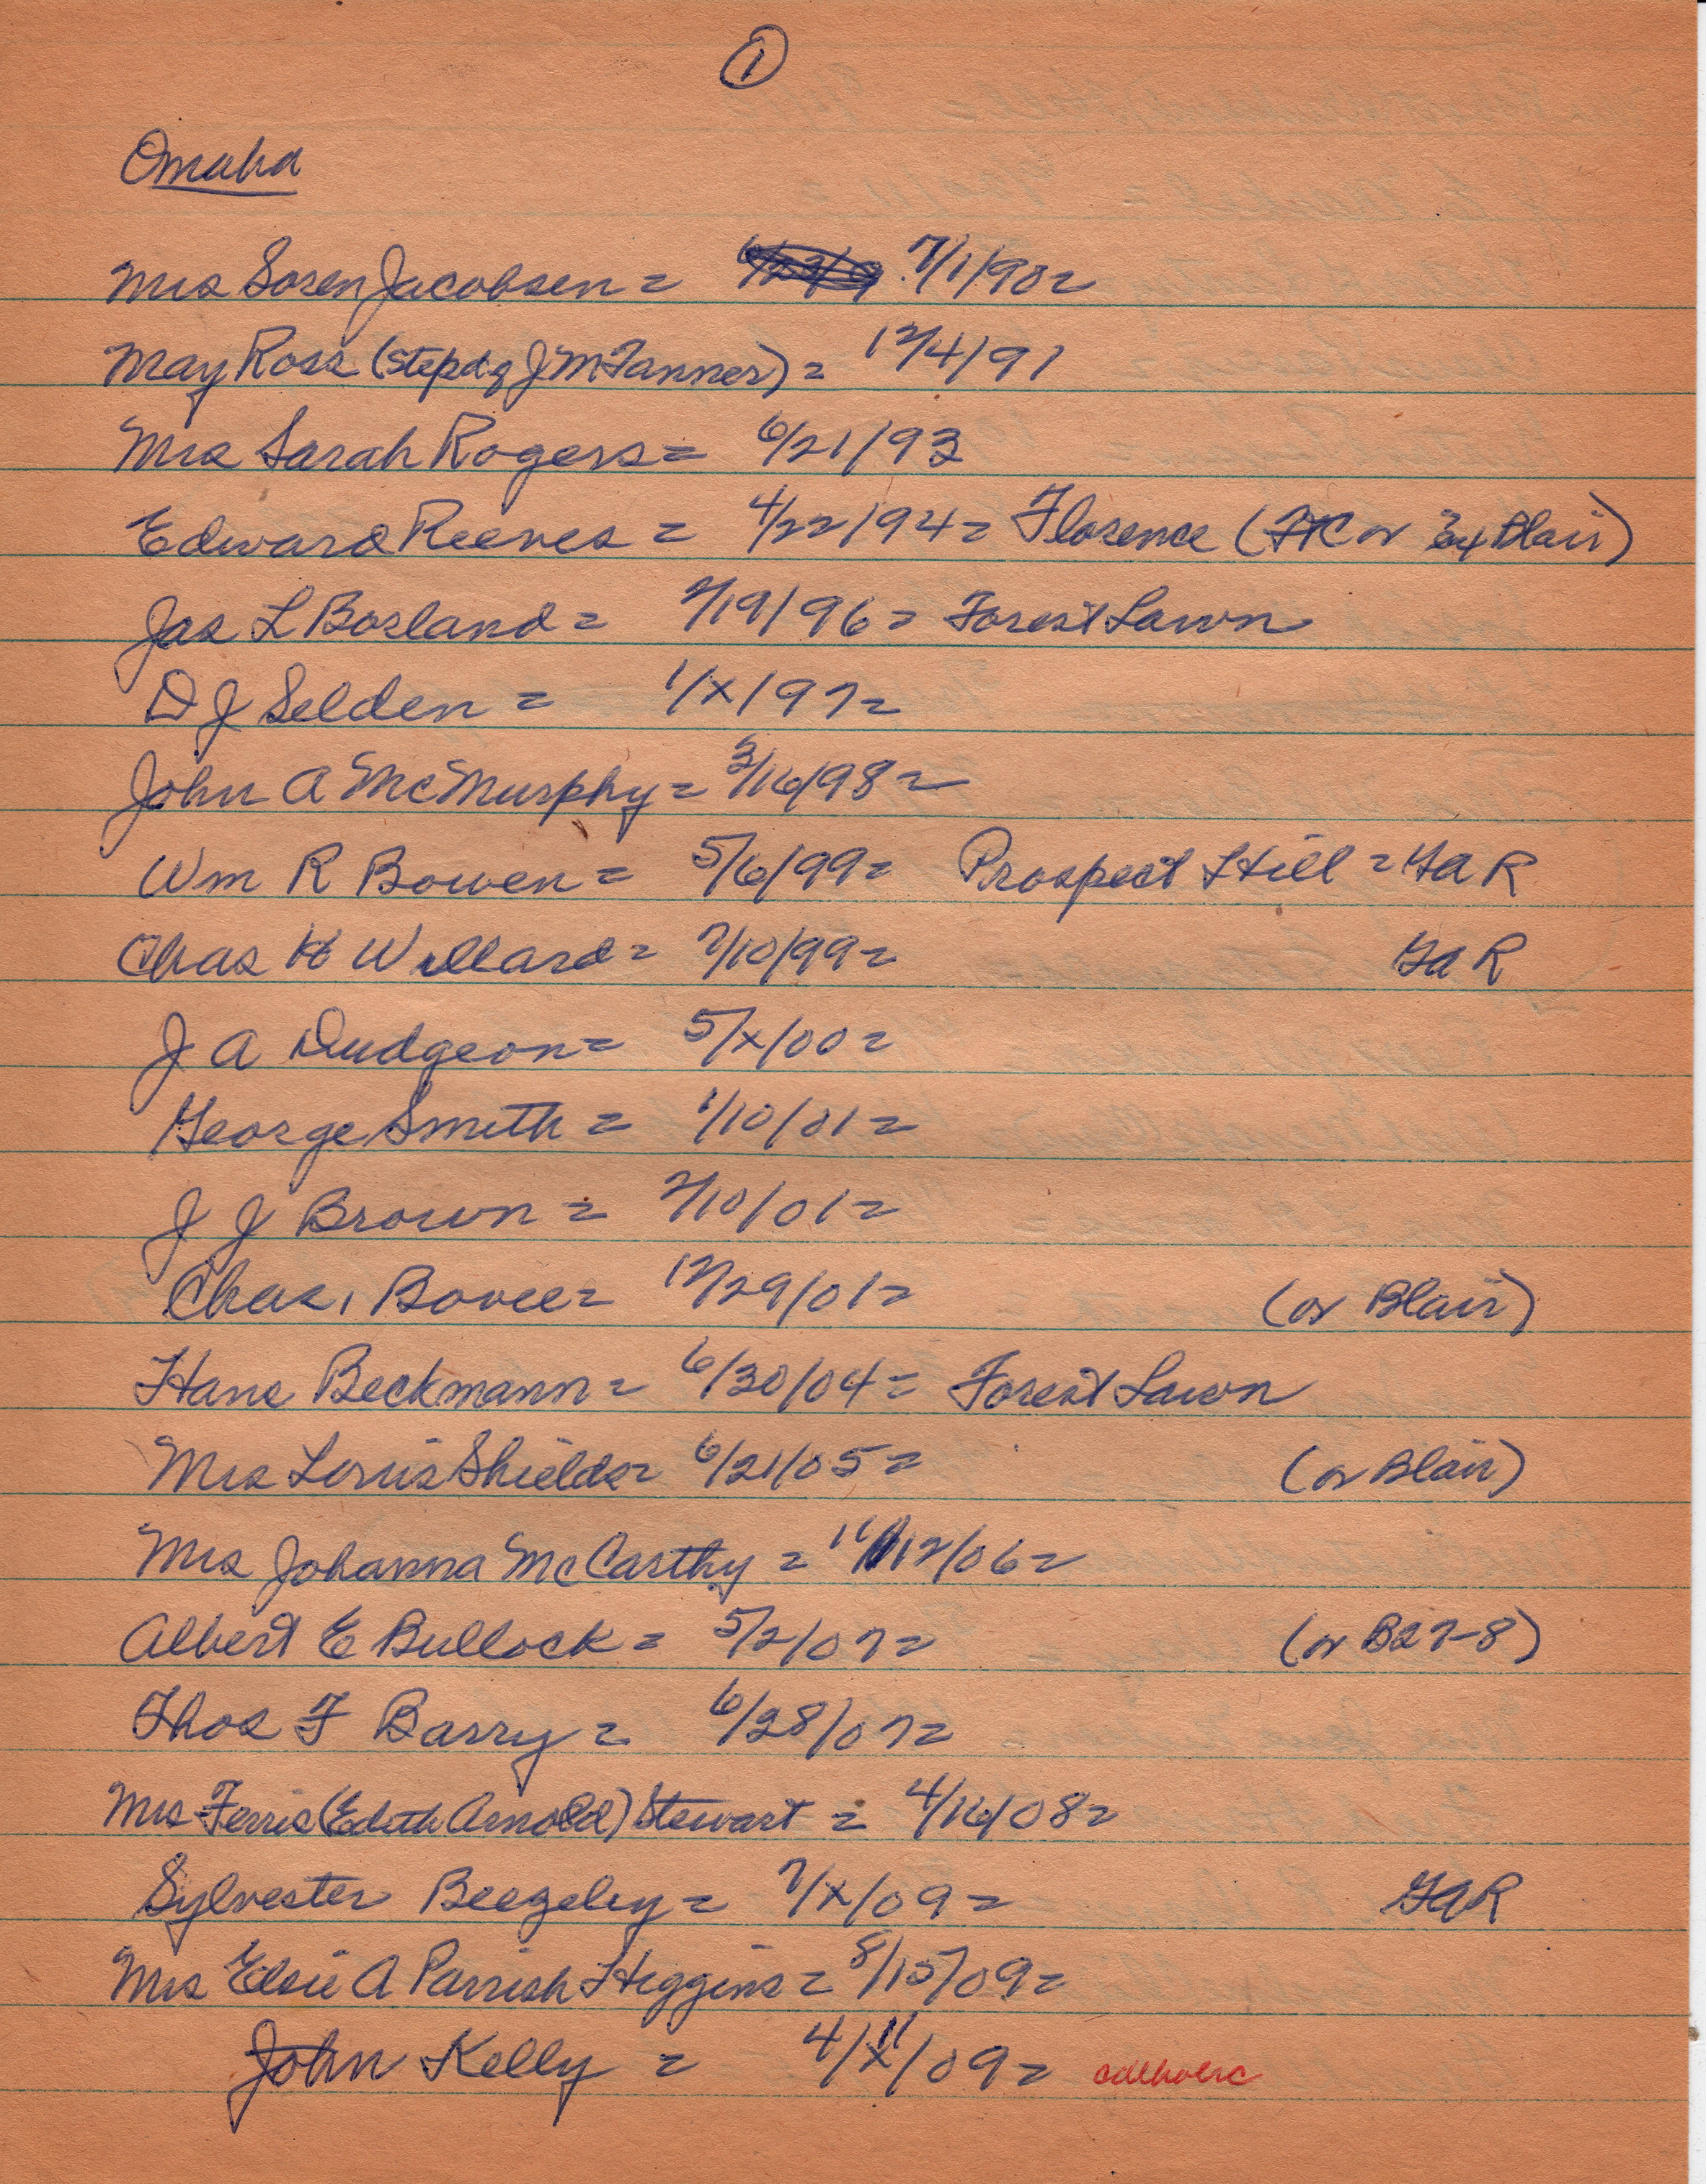 1
Omaha
Mrs Soren Jacobsen = 7/1/90 =
May Ross (stepdg J M Tanner) = 12/4/91
Mrs Sarah Rogers = 6/21/93
Edward Reeves = 4/22/94 = Florence (FtC or Blair)
Jas L Borland = 2/19/96 = Forest Lawn
D J Selden = 1/x/97 =
John A McMurphy = 3/16/98 =
Wm R Bowen = 5/6/99 = Prospect Hill = GAR
Chas H Willard = 7/10/99 = GAR
J A Dudgeon = 5/x/00 =
George Smith = 1/10/01 =
J J Brown = 2/10/01 =
Chas. Bovee = 12/29/01 = (or Blair)
Hans Beckmann = 6/30/04 = Forest Lawn
Mrs Louis Shields = 6/21/05 = (or Blair)
Mrs Johanna McCarthy = 11/12/06 =
Albert E Bullock = 5/2/07 = (or B27-8)
Thos F Barry = 6/28/07 =
Mrs Ferris (Edith Arnold) Stewart = 4/16/08 =
Sylvester Beezeley = 7/x/09 = GAR
Mrs Elsie A Parrish Higgins = 8/15/09 =
John Kelly = 4/11/09 = catholic